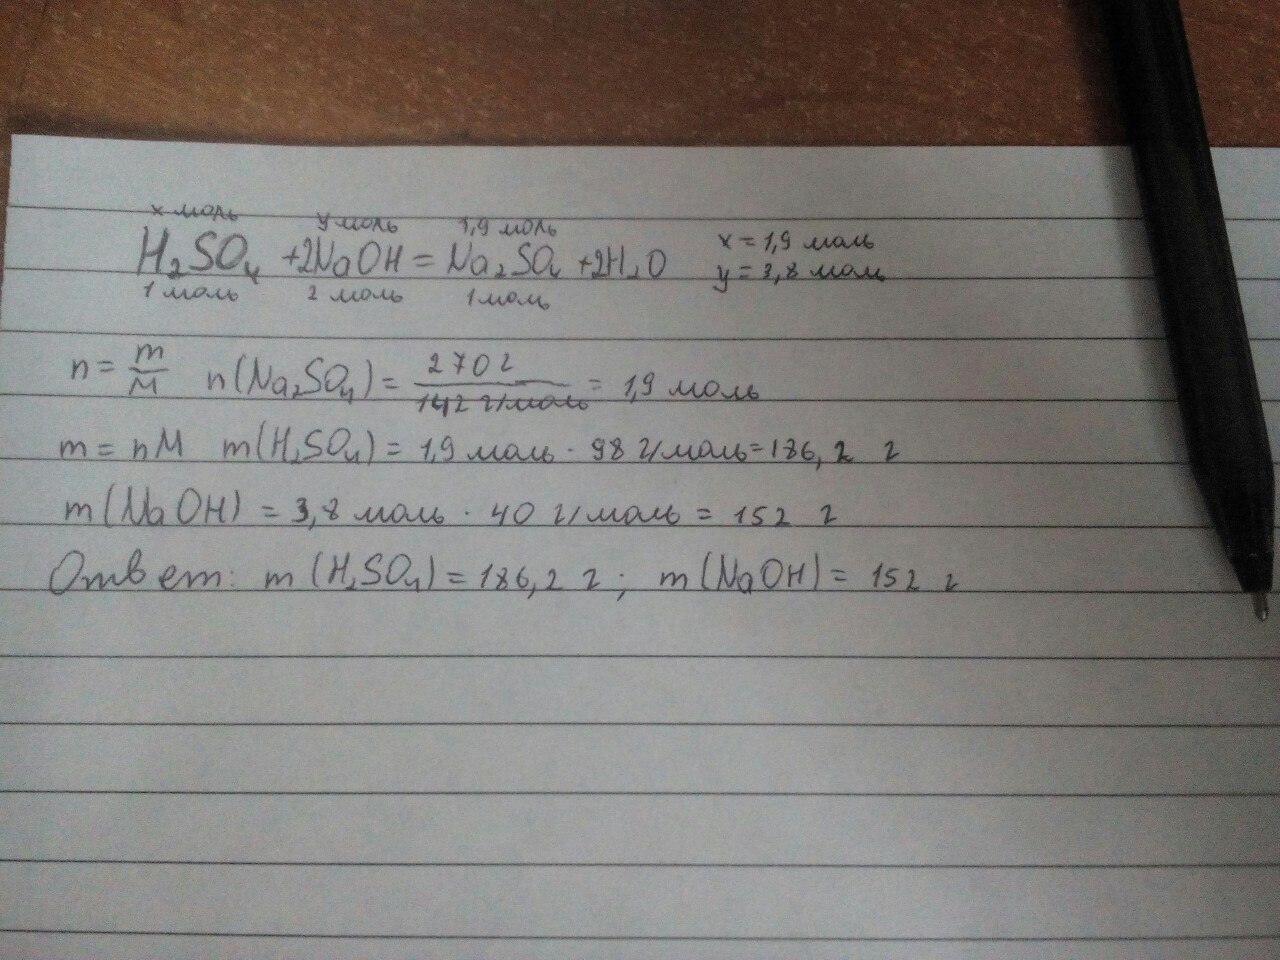 x моль y моль 1,9 моль
H₂SO₄ +2NaOH = Na₂SO₄ +2H₂O x = 1,9 моль
1 моль 2 моль 1 моль y = 3,8 моль
n = m/M n(Na₂SO₄) = 270 г / 142 г/моль = 1,9 моль
m = nM m(H₂SO₄) = 1,9 моль · 98 г/моль = 186,2 г
m(NaOH) = 3,8 моль · 40 г/моль = 152 г
Ответ: m(H₂SO₄) = 186,2 г; m(NaOH) = 152 г